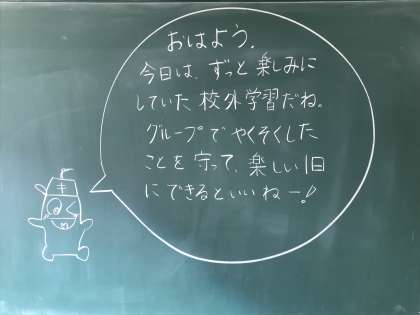 おはよう。
今日は、ずっと楽しみに
していた校外学習だね。
グループでやくそくした
ことを守って、楽しい1日
にできるといいねー!
キ